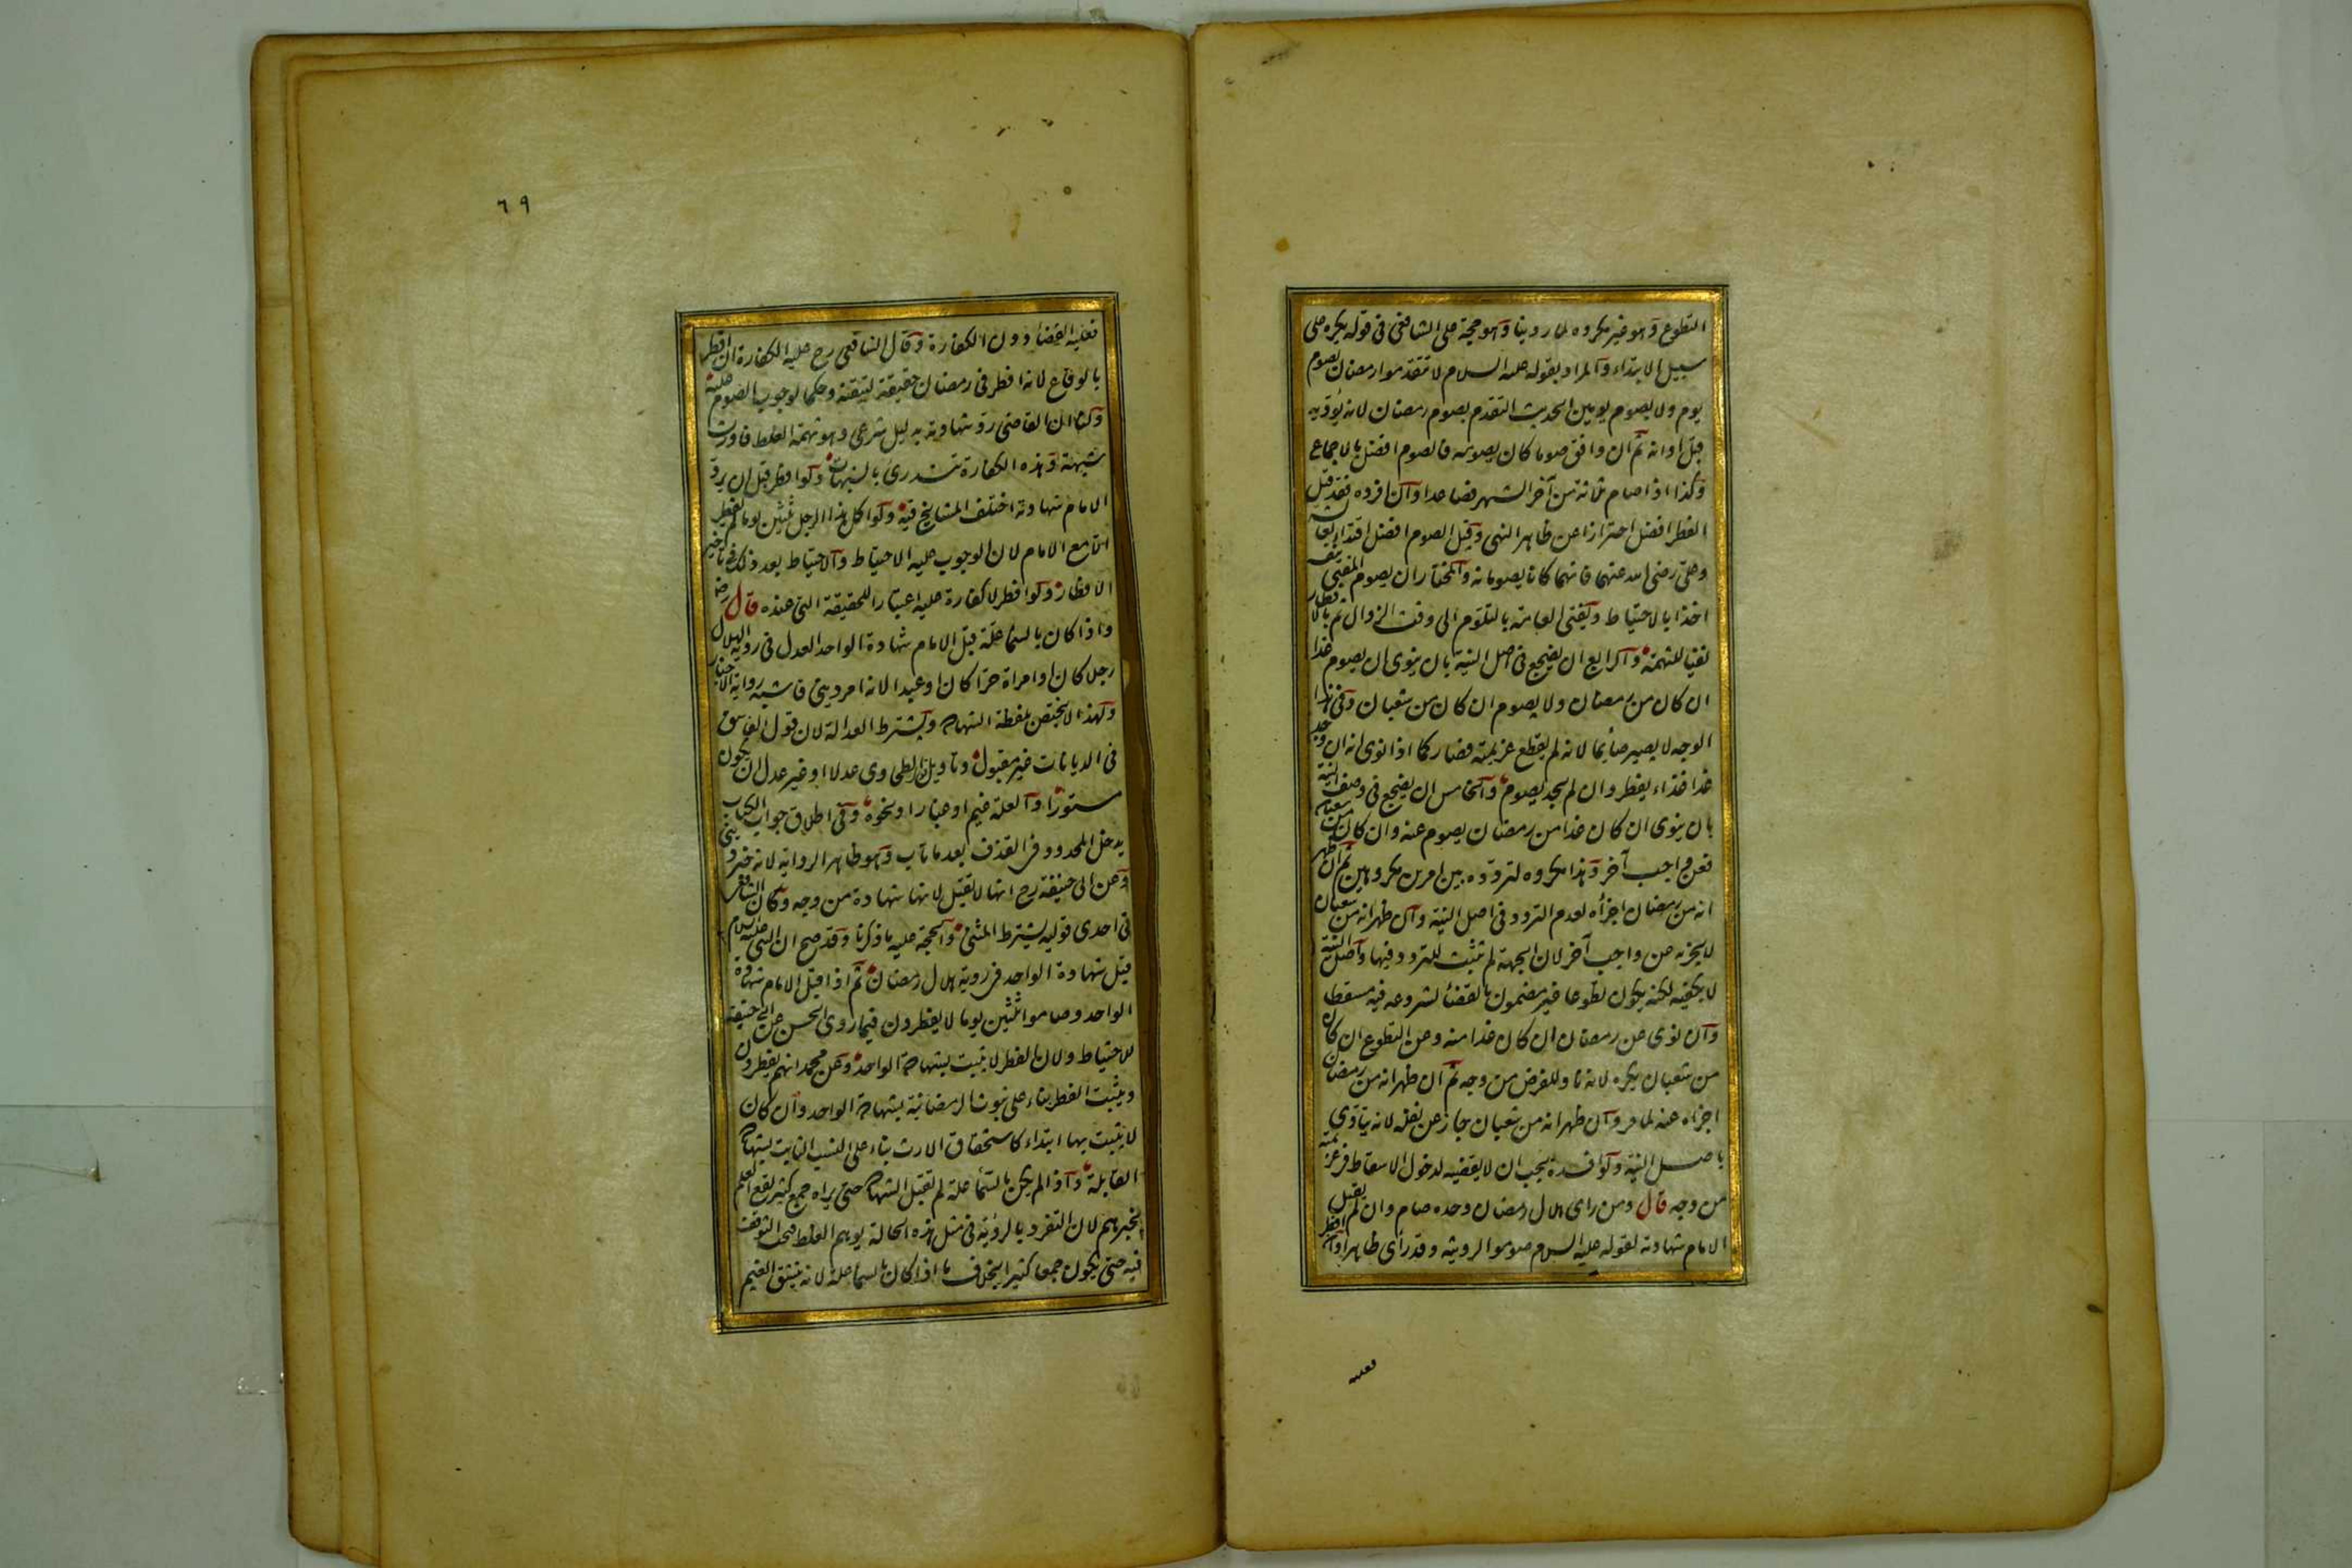 التطوع وهو غير مكروه لما روينا وهو حجة على الشافعى فى قوله يكره على
سبيل الابتداء والمراد بقوله عليه السلام لا تتقدموا رمضان بصوم
يوم ولا بصوم يومين الحديث التقدم بصوم رمضان لانه يؤديه
قبل اوانه ثم ان وافق صوما كان يصومه فالصوم افضل بالاجماع
وكذا اذا صام ثلثة من آخر الشهر فصاعدا وان افرده فقد قيل
الفطر افضل احترازا عن ظاهر النهى وقيل الصوم افضل اقتداء بعايشه
وعلى رضى الله عنهما فانهما كانا يصومانه والمختار ان يصوم المفتى بنفسه
اخذا بالاحتياط ويفتى العامة بالتلوم الى وقت الزوال ثم بالافطار
نفيا للتهمة والرابع ان يضجع فى اصل النية بان ينوى ان يصوم غدا
ان كان من رمضان ولا يصوم ان كان من شعبان وفى هذا
الوجه لا يصير صائما لانه لم يقطع عزيمته فصار كما اذا نوى انه ان وجد
غدا غذاء يفطر وان لم يجد يصوم والخامس ان يضجع فى وصف النية
بان ينوى ان كان غدا من رمضان يصوم عنه وان كان من شعبان
فعن واجب آخر وهذا مكروه لتردده بين امرين مكروهين ثم ان ظهر
انه من رمضان اجزأه لعدم التردد فى اصل النية وان ظهر انه من شعبان
لا يجزيه عن واجب آخر لان الجهة لم تثبت للتردد فيها واصل النية
لا يكفيه لكنه يكون تطوعا غير مضمون بالقضأ لشروعه فيه مسقطا
وان نوى عن رمضان ان كان غدا منه وعن التطوع ان كان
من شعبان يكره لانه ناو للفرض من وجه ثم ان ظهر انه من رمضان
اجزاه عنه لما مر وان ظهر انه من شعبان جاز عن نفله لانه يتادى
باصل النية ولو افسده يجب ان لا يقضيه لدخول الاسقاط فى عزيمته
من وجه قال ومن راى هلال رمضان وحده صام وان لم يقبل
الامام شهادته لقوله عليه السلام صوموا لرويته وقد رأى ظاهرا وان افطر
فعليه
٦٩
فعليه القضأ دون الكفارة وقال الشافعى رح عليه الكفارة ان افطر
بالوقاع لانه افطر فى رمضان حقيقة لتيقنه وحكما لوجوب الصوم عليه
ولنا ان القاضى رد شهادته بدليل شرعى وهو تهمة الغلط فاورث
شبهة وهذه الكفارة تندرئ بالشبهات ولو افطر قبل ان يرد
الامام شهادته اختلف المشايخ فيه ولو اكمل هذا الرجل ثلثين يوما لم يفطر
الا مع الامام لان الوجوب عليه للاحتياط والاحتياط بعد ذلك فى تاخير
الافطار ولو افطر لا كفارة عليه اعتبارا للحقيقة التى عنده قال رض
واذا كان بالسماء علة قبل الامام شهادة الواحد العدل فى روية الهلال
رجل كان او امراة حرا كان او عبدا لانه امر دينى فاشبه رواية الاخبار
ولهذا لا يختص بلفظة الشهادة ويشترط العدالة لان قول الفاسق
فى الديانات غير مقبول وتاويل قول الطحاوى عدلا او غير عدل ان يكون
مستورا والعلة غيم او غبار او نحوه وفى اطلاق جواب الكتاب
يدخل المحدود فى القذف بعد ما تاب وهو ظاهر الرواية لانه خبر دينى
وعن ابى حنيفة رح انها لا تقبل لانها شهادة من وجه وكان الشافعى
فى احدى قوليه يشترط المثنى والحجة عليه ما ذكرنا وقد صح ان النبى عليه السلام
قبل شهادة الواحد فى روية هلال رمضان ثم اذا قبل الامام شهادة
الواحد وصاموا ثلثين يوما لا يفطرون فيما روى الحسن عن ابى حنيفة
للاحتياط ولان الفطر لا يثبت بشهادة الواحد وعن محمد انهم يفطرون
ويثبت الفطر بناء على ثبوت الرمضانية بشهادة الواحد وان كان
لا يثبت بها ابتداء كاستحقاق الارث بناء على النسب الثابت بشهادة
القابلة واذا لم يكن بالسمأ علة لم تقبل الشهادة حتى يراه جمع كثير يقع العلم
بخبرهم لان التفرد بالرؤية فى مثل هذه الحالة يوهم الغلط فيجب التوقف
فيه حتى يكون جمعا كثيرا بخلاف ما اذا كان بالسمأ علة لانه ينشق الغيم